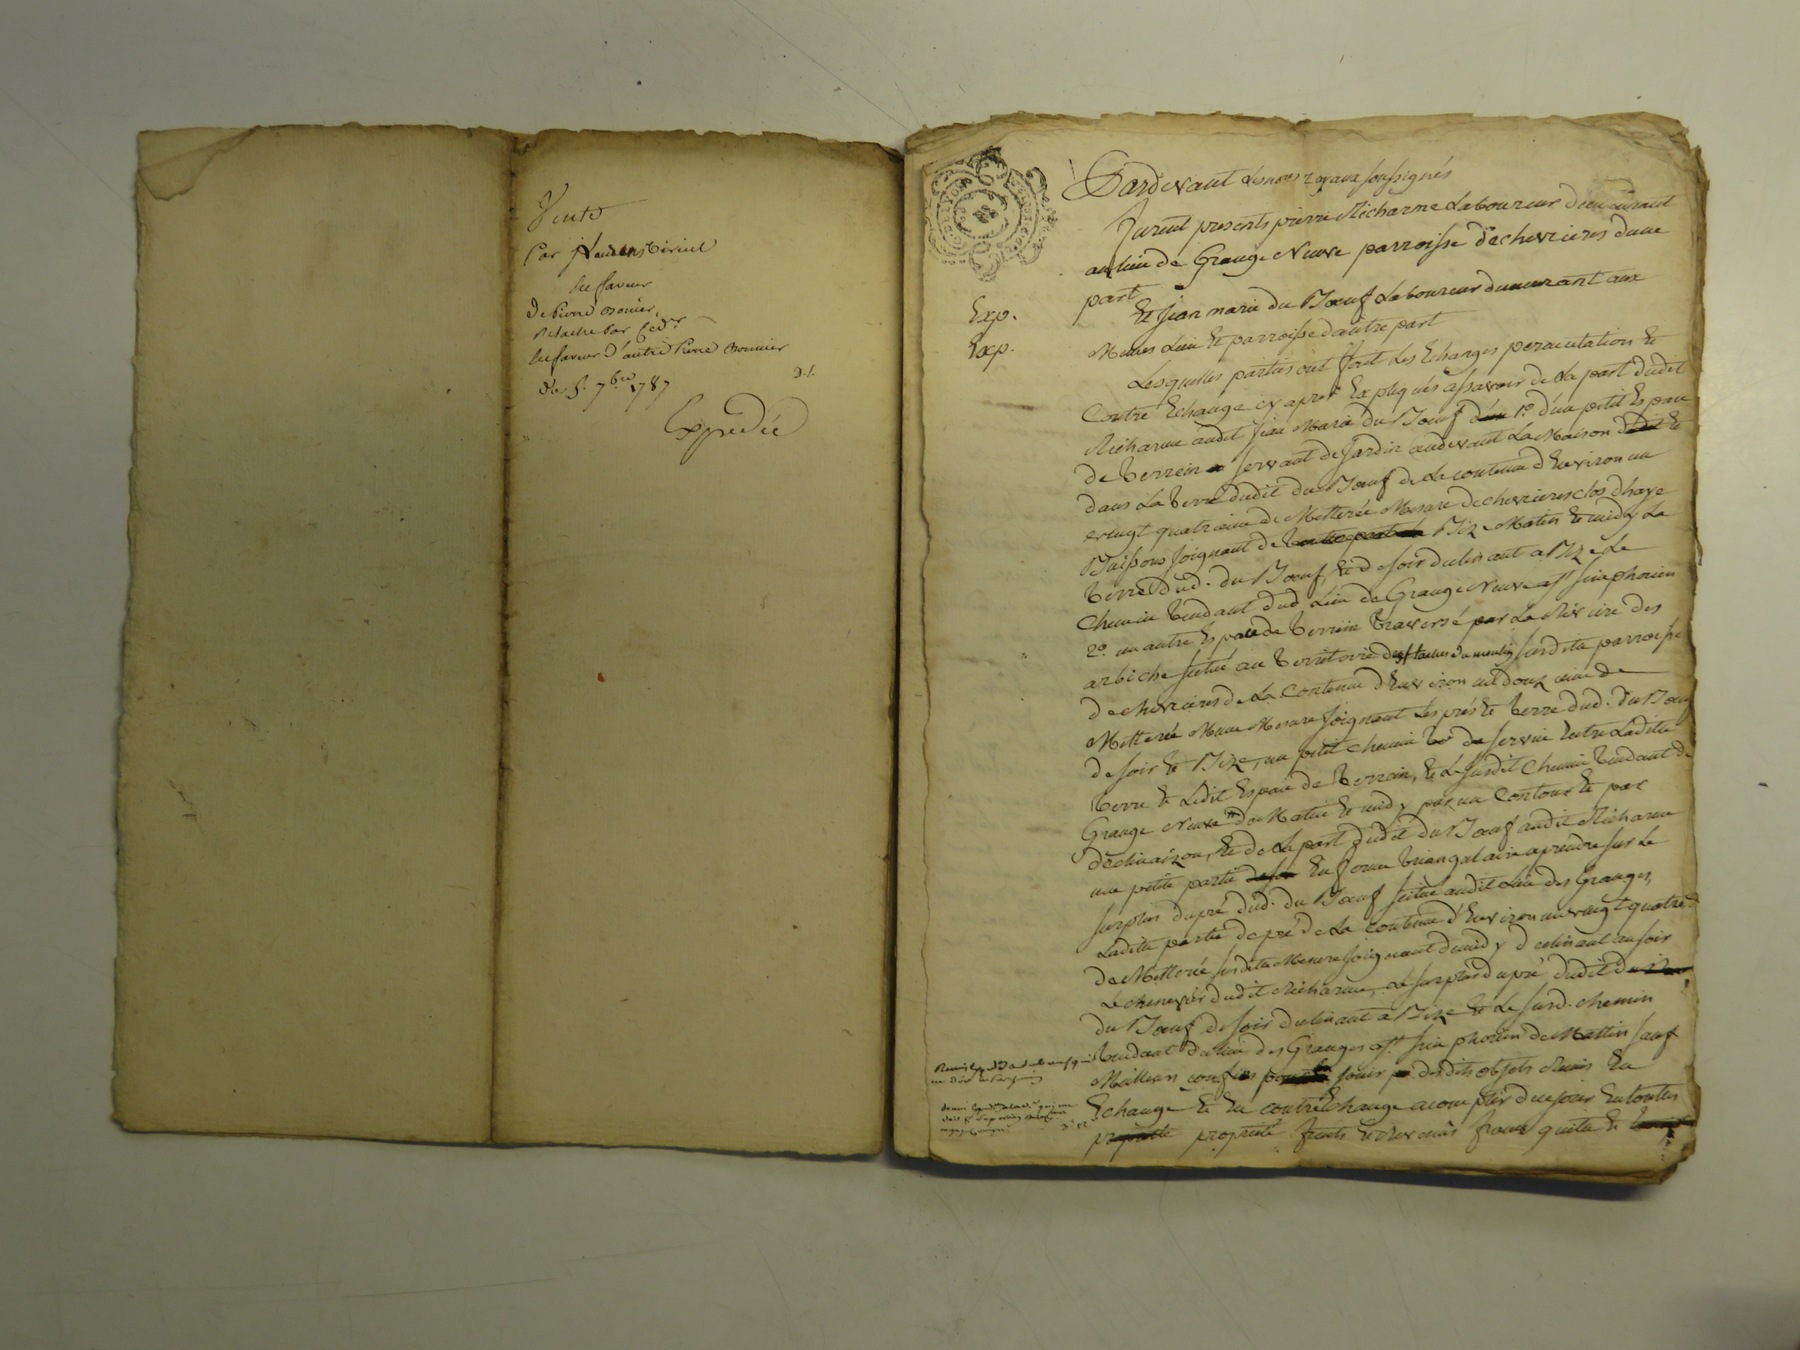 Vente
par
en faveur
de Pierre
par
en faveur d'autre Pierre
du 5. 7bre 1787
Expediée
Exp.
Exp.
Pardevant les noes royaux soussignés
furent presents pierre Richarme Laboureur demeurant
au lieu de Grange Neuve parroisse de chevrieres d'une
part
Et jean marie du Boeuf Laboureur demeurant aux
Memes Lieu et parroisse d'autre part
Lesquelles parties ont fait Les Echanges permutation et
Contre Echange cy apres Expliqués assavoir de La part dudit
Richarme audit jean Marie du Boeuf 1o. d'un petit Espace
de terrein servant de jardin audevant La Maison et
dans La terre dudit du Boeuf de La contenue d'Environ un
vingt quatrieme de Metterée Mesure de chevrieres clos d'haye
Buissons joignant de Bize Matin et midy La
terre dud. du Boeuf, et de soir declinant a Bize Le
Chemin tendant dud. Lieu de Grange Neuve a st simphorien
2o. un autre Espace de terrein traversé par La Riviere des
arbiche situé au territoire du moulin susdite parroisse
de chevrieres de La Contenue d'Environ un douzieme de
Metterée Meme Mesure joignant Les prés et terre dud. du Boeuf
de soir et Bize, un petit chemin de service Entre Ladite
terre et Ledit Espace de terrein, et Le susdit chemin tendant de
Grange Neuve de Matin et midy par un Contour et par
declinaizon, Et de La part dudit du Boeuf audit Richarme
une petite partie En forme triangulaire aprendre sur Le
surplus du pré dud. du Boeuf situé audit Lieu des Granges,
Ladite partie de pré de La contenue d'Environ un vingt quatre
de Metterée susdite Mesure joignant de midy declinant au soir
Le chenevier dudit Richarme, Le surplus du pré dudit
du Boeuf de soir declinant a Bize et Le susd. chemin
tendant du lieu des Granges a st simphorien de Mattin sauf
Meilleurs confins pour jouir desdits objets Remis En
Echange Et En contre Echange acompter de ce jour En toutes
proprieté fruits et revenus francs quitte et